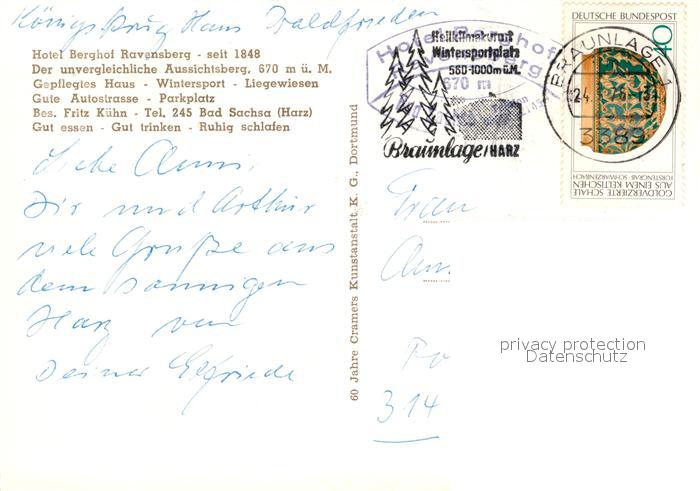 Königskrug Haus Waldfrieden
Hotel Berghof Ravensberg - seit 1848
Der unvergleichliche Aussichtsberg, 670 m ü. M.
Gepflegtes Haus - Wintersport - Liegewiesen
Gute Autostrasse - Parkplatz
Bes. Fritz Kühn - Tel. 245 Bad Sachsa (Harz)
Gut essen - Gut trinken - Ruhig schlafen
Liebe Anni,
Dir und Arthur
viele Grüße aus
dem sonnigen
Harz von
Deiner Elfriede
60 Jahre Cramers Kunstanstalt K. G., Dortmund
Hotel Berghof
670 m
Heilklimakurort
Wintersportplatz
560-1000m ü.M.
Braunlage/HARZ
BRAUNLAGE 1
3389
DEUTSCHE BUNDESPOST
40
GOLDVERZIERTE SCHALE
AUS EINEM KELTISCHEN
FÜRSTENGRAB SCHWARZENBACH
Frau
314
privacy protection
Datenschutz